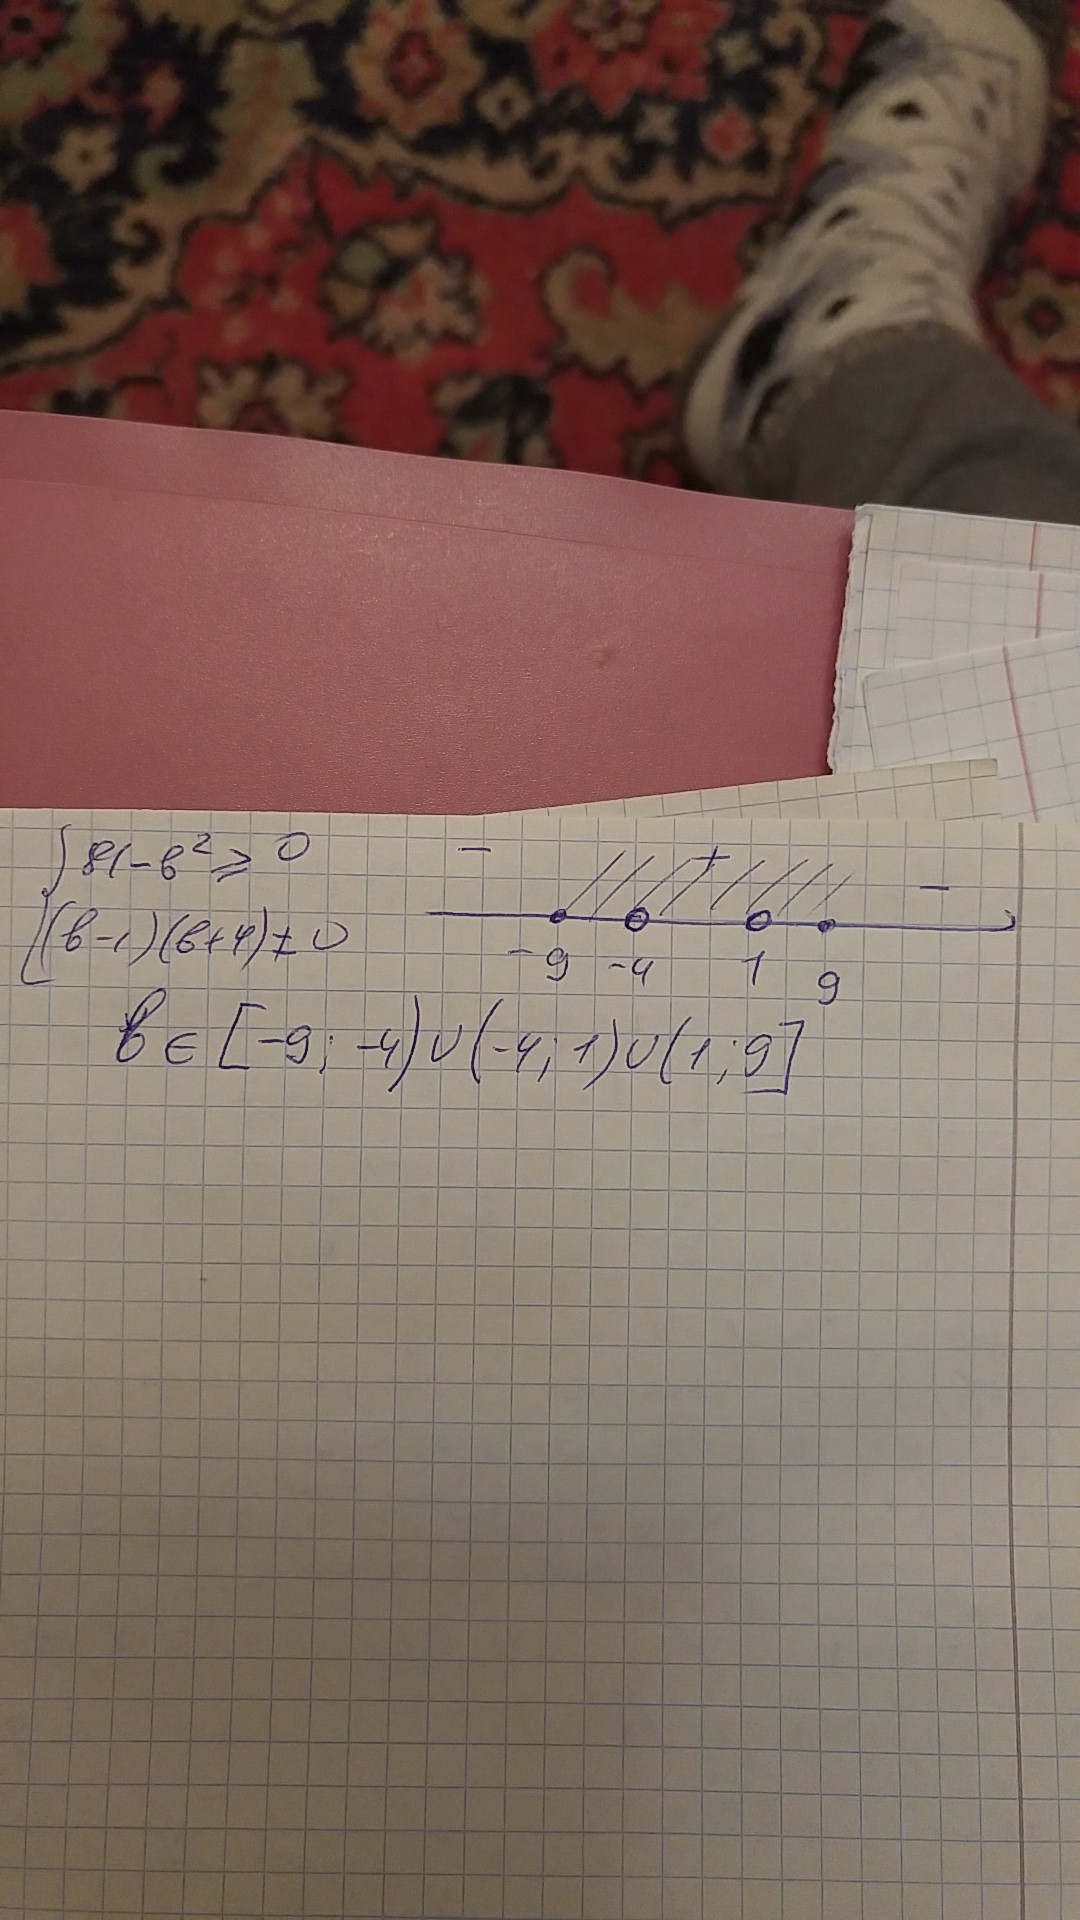 { 81-в² ⩾ 0 - + -
(в-1)(в+4) ≠ 0 -9 -4 1 9
в ∈ [-9; -4) ∪ (-4; 1) ∪ (1; 9]